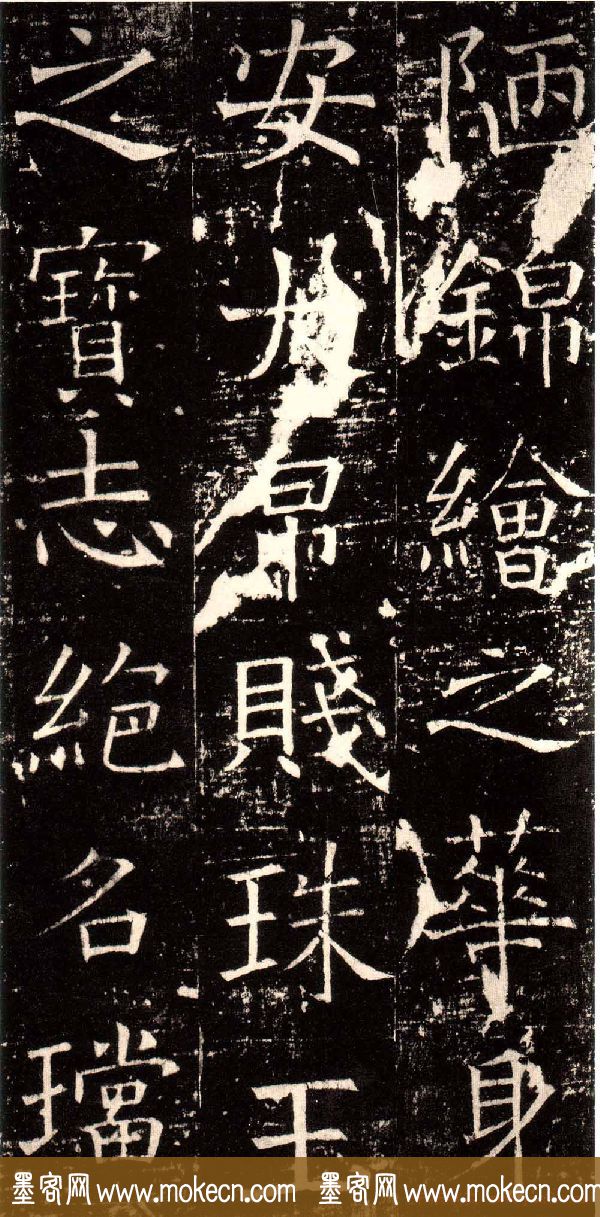 陋錦繪之華身
安大帛賤珠玉
之寶志絕名璫
墨客网 www.mokecn.com 墨客网 www.mokecn.com